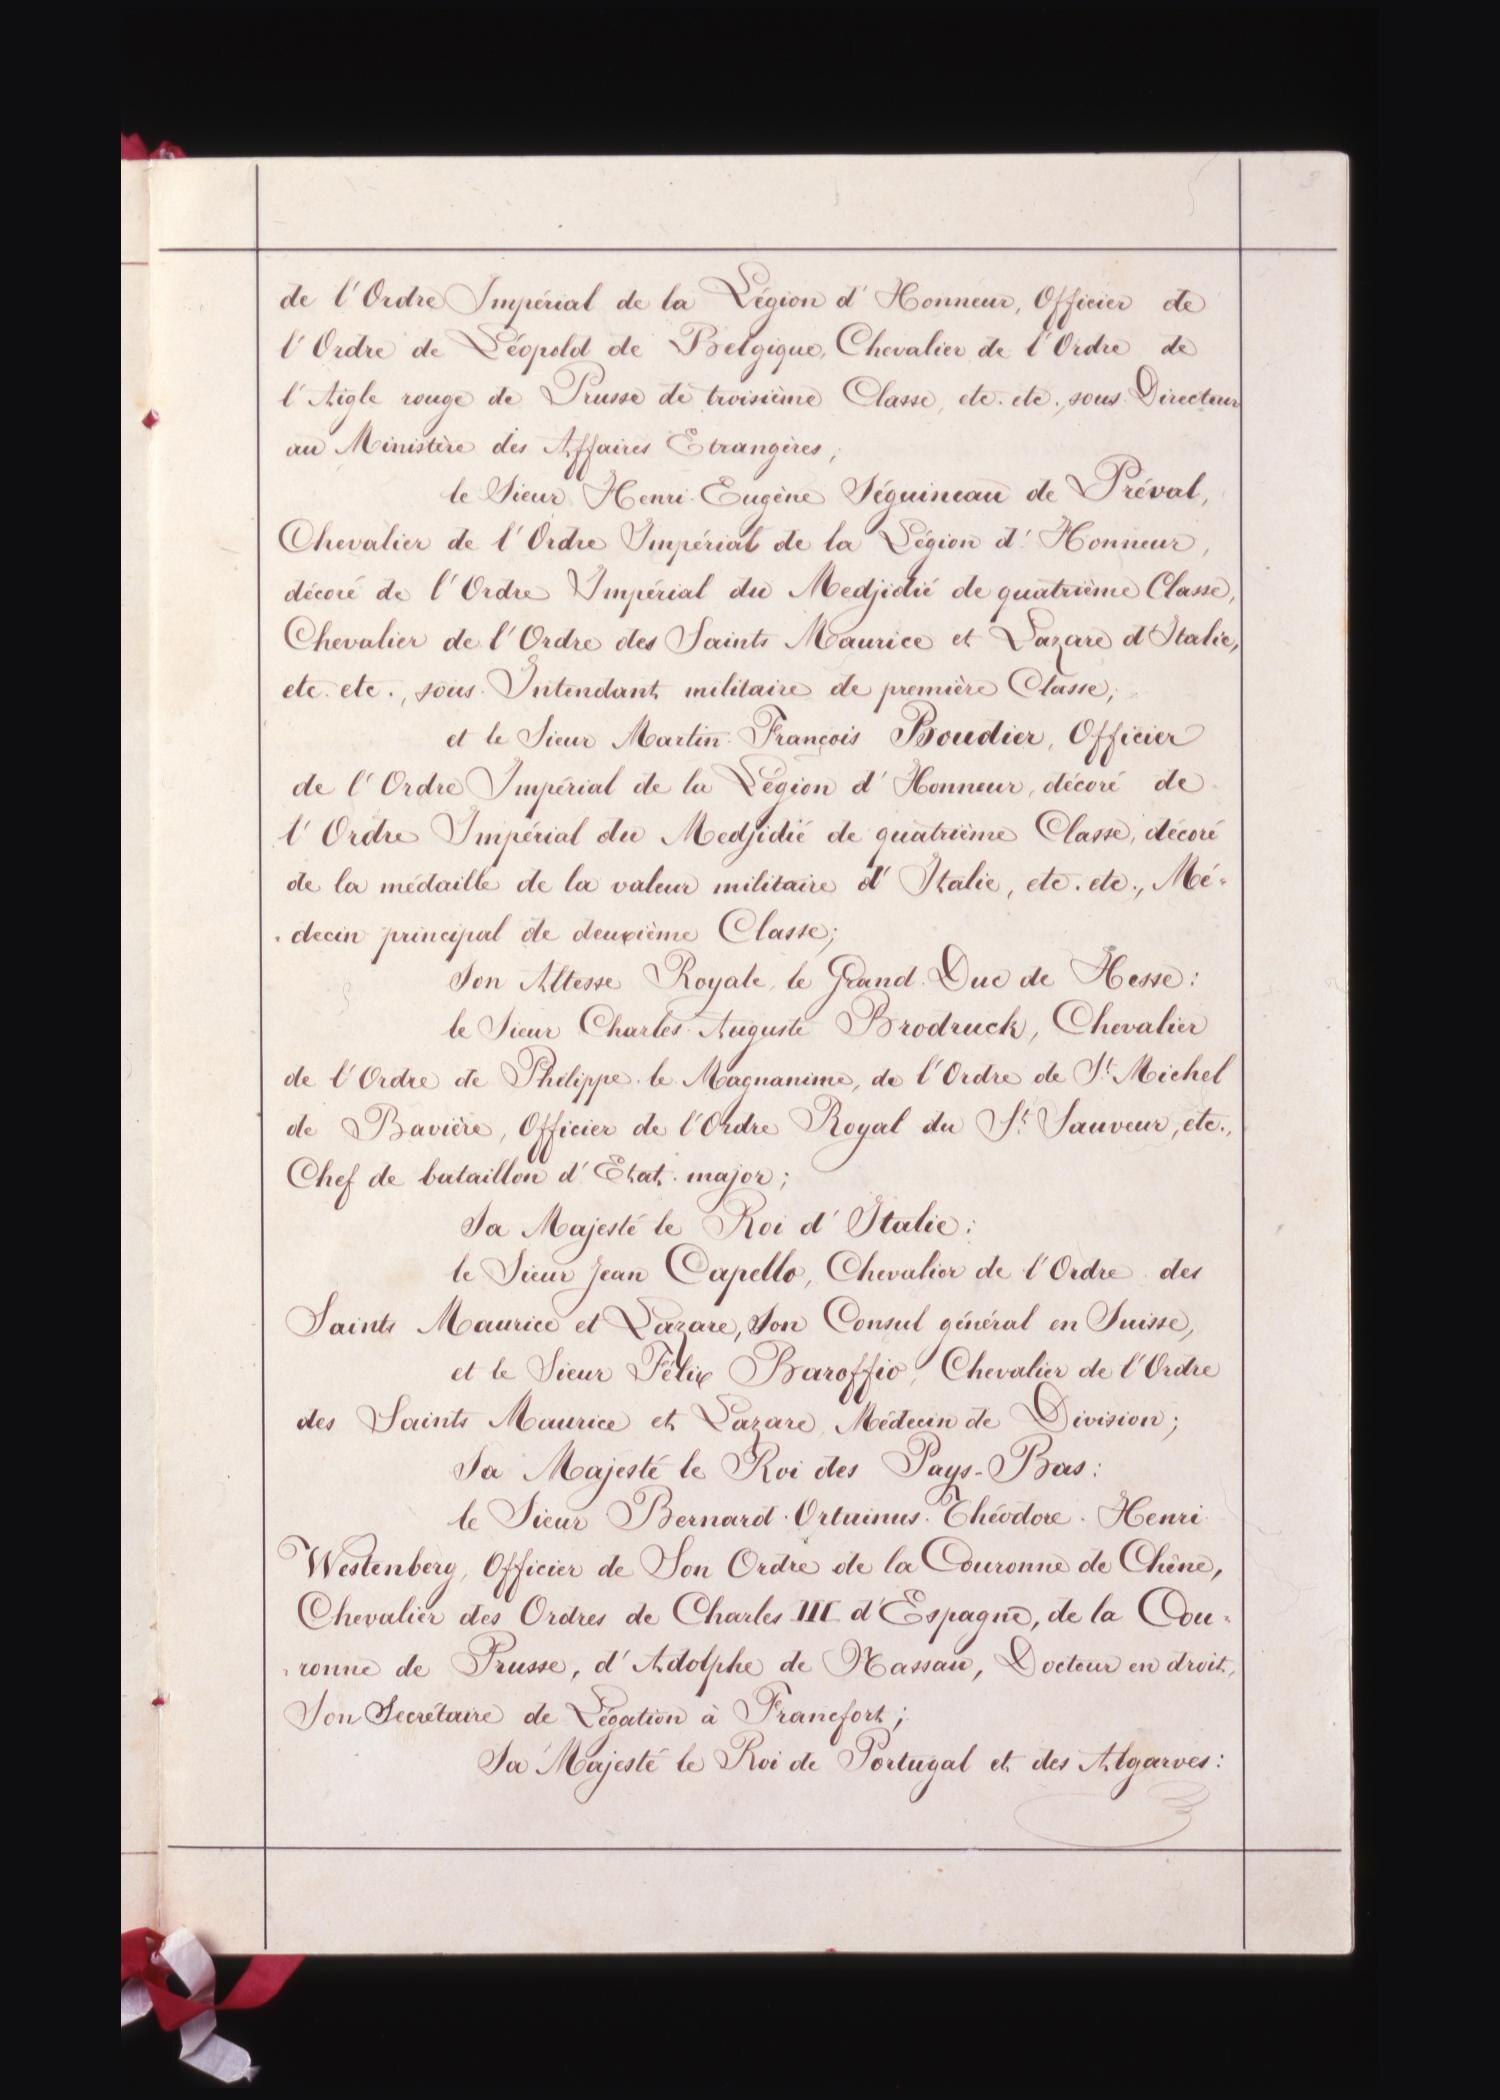 de l'Ordre Impérial de la Légion d'Honneur, Officier de
l'Ordre de Léopold de Belgique, Chevalier de l'Ordre de
l'Aigle rouge de Prusse de troisième Classe, etc. etc., sous-Directeur
au Ministère des Affaires Etrangères;
le Sieur Henri-Eugène Séguineau de Préval,
Chevalier de l'Ordre Impérial de la Légion d'Honneur,
décoré de l'Ordre Impérial du Medjidié de quatrième Classe,
Chevalier de l'Ordre des Saints Maurice et Lazare d'Italie,
etc. etc., sous-Intendant militaire de première Classe;
et le Sieur Martin-François Boudier, Officier
de l'Ordre Impérial de la Légion d'Honneur, décoré de
l'Ordre Impérial du Medjidié de quatrième Classe, décoré
de la médaille de la valeur militaire d'Italie, etc. etc., Mé-
-decin principal de deuxième Classe;
Son Altesse Royale le Grand-Duc de Hesse:
le Sieur Charles-Auguste Brodruck, Chevalier
de l'Ordre de Philippe-le-Magnanime, de l'Ordre de St. Michel
de Bavière, Officier de l'Ordre Royal du St. Sauveur, etc.,
Chef de bataillon d'Etat-major;
Sa Majesté le Roi d'Italie:
le Sieur Jean Capello, Chevalier de l'Ordre des
Saints Maurice et Lazare, Son Consul général en Suisse,
et le Sieur Félix Baroffio, Chevalier de l'Ordre
des Saints Maurice et Lazare, Médecin de Division;
Sa Majesté le Roi des Pays-Bas:
le Sieur Bernard-Ortuinus-Théodore-Henri
Westenberg, Officier de Son Ordre de la Couronne de Chêne,
Chevalier des Ordres de Charles III d'Espagne, de la Cou-
-ronne de Prusse, d'Adolphe de Nassau, Docteur en droit,
Son Secrétaire de Légation à Francfort;
Sa Majesté le Roi de Portugal et des Algarves: